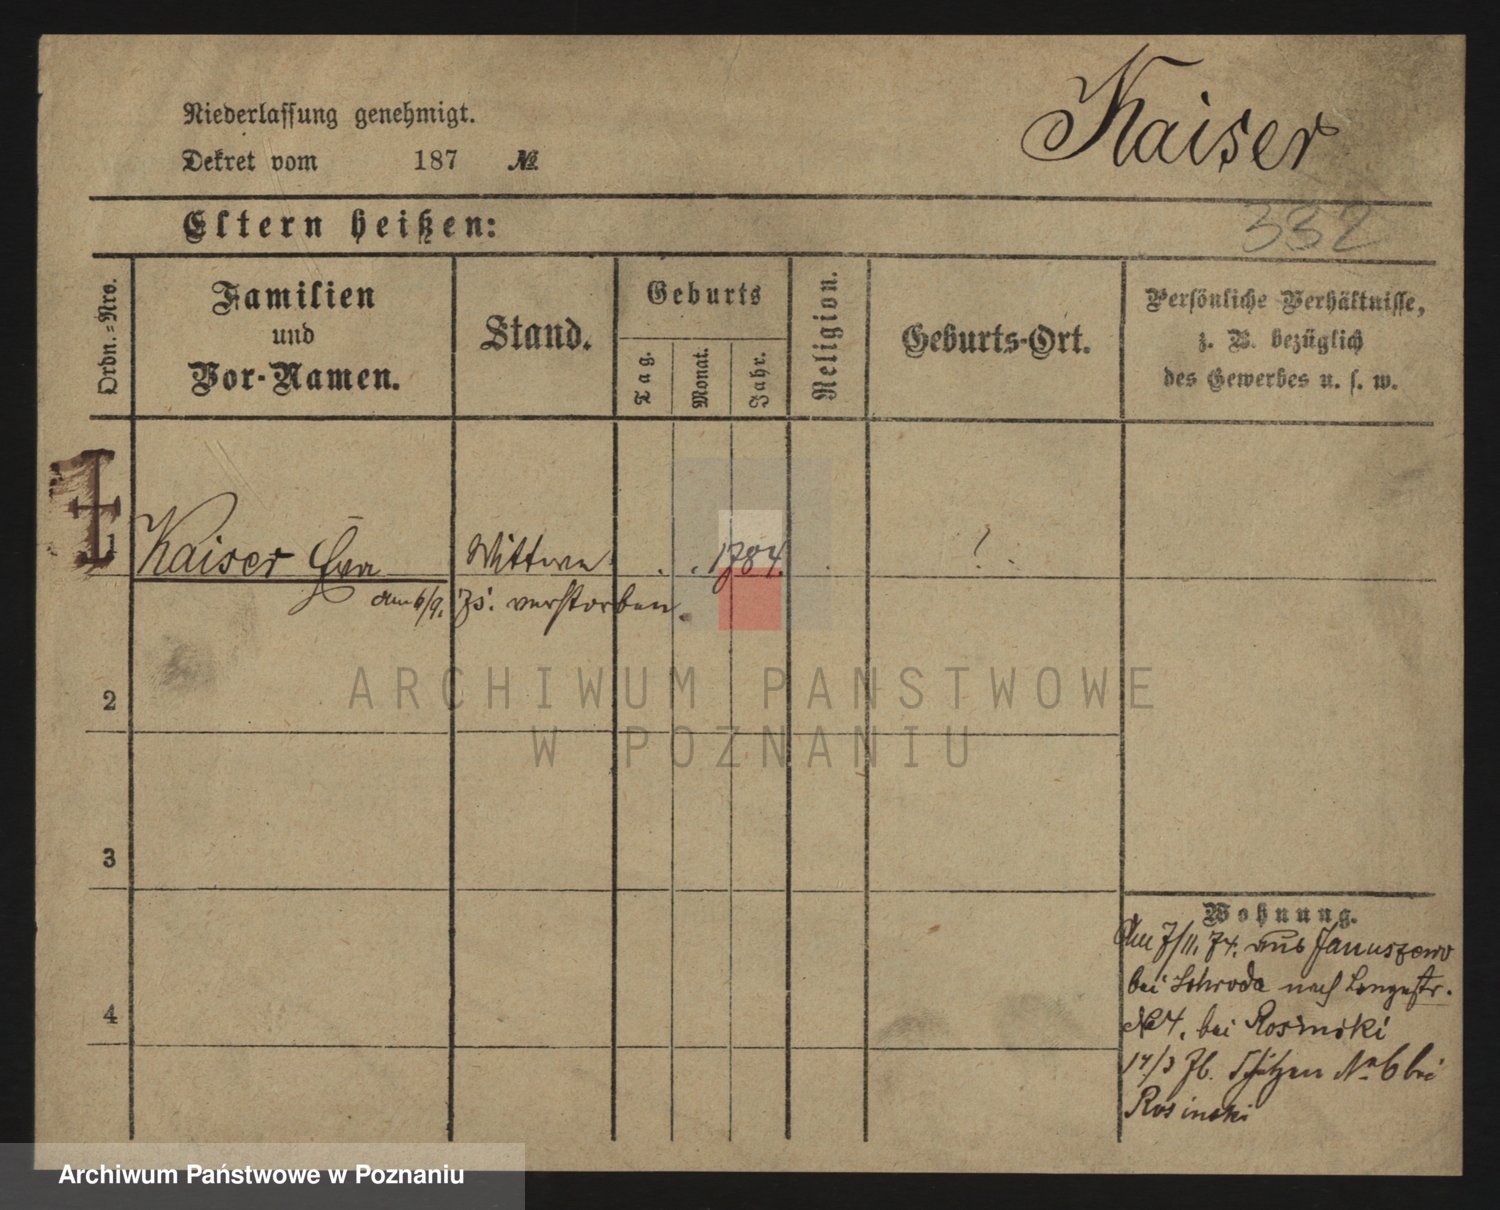 Niederlassung genehmigt.
Kaiser
Dekret vom 187 №
Eltern heißen:
332
Ordn.-Nro.
Familien und Vor-Namen.
Stand.
Geburts
Tag.
Monat.
Jahr.
Religion.
Geburts-Ort.
Persönliche Verhältnisse,
z. B. bezüglich
des Gewerbes u. s. w.
1 Kaiser Eva Wittwe . . 1784. . ? .
am 6/9. 75. verstorben.
2
3
4
Wohnung.
Am 7/11. 74. aus Januszewo
bei Schroda nach Langestr.
№ 4. bei Rosinski
17/3 76. Schützen No 6 bei
Rosinski
ARCHIWUM PANSTWOWE
W POZNANIU
Archiwum Państwowe w Poznaniu